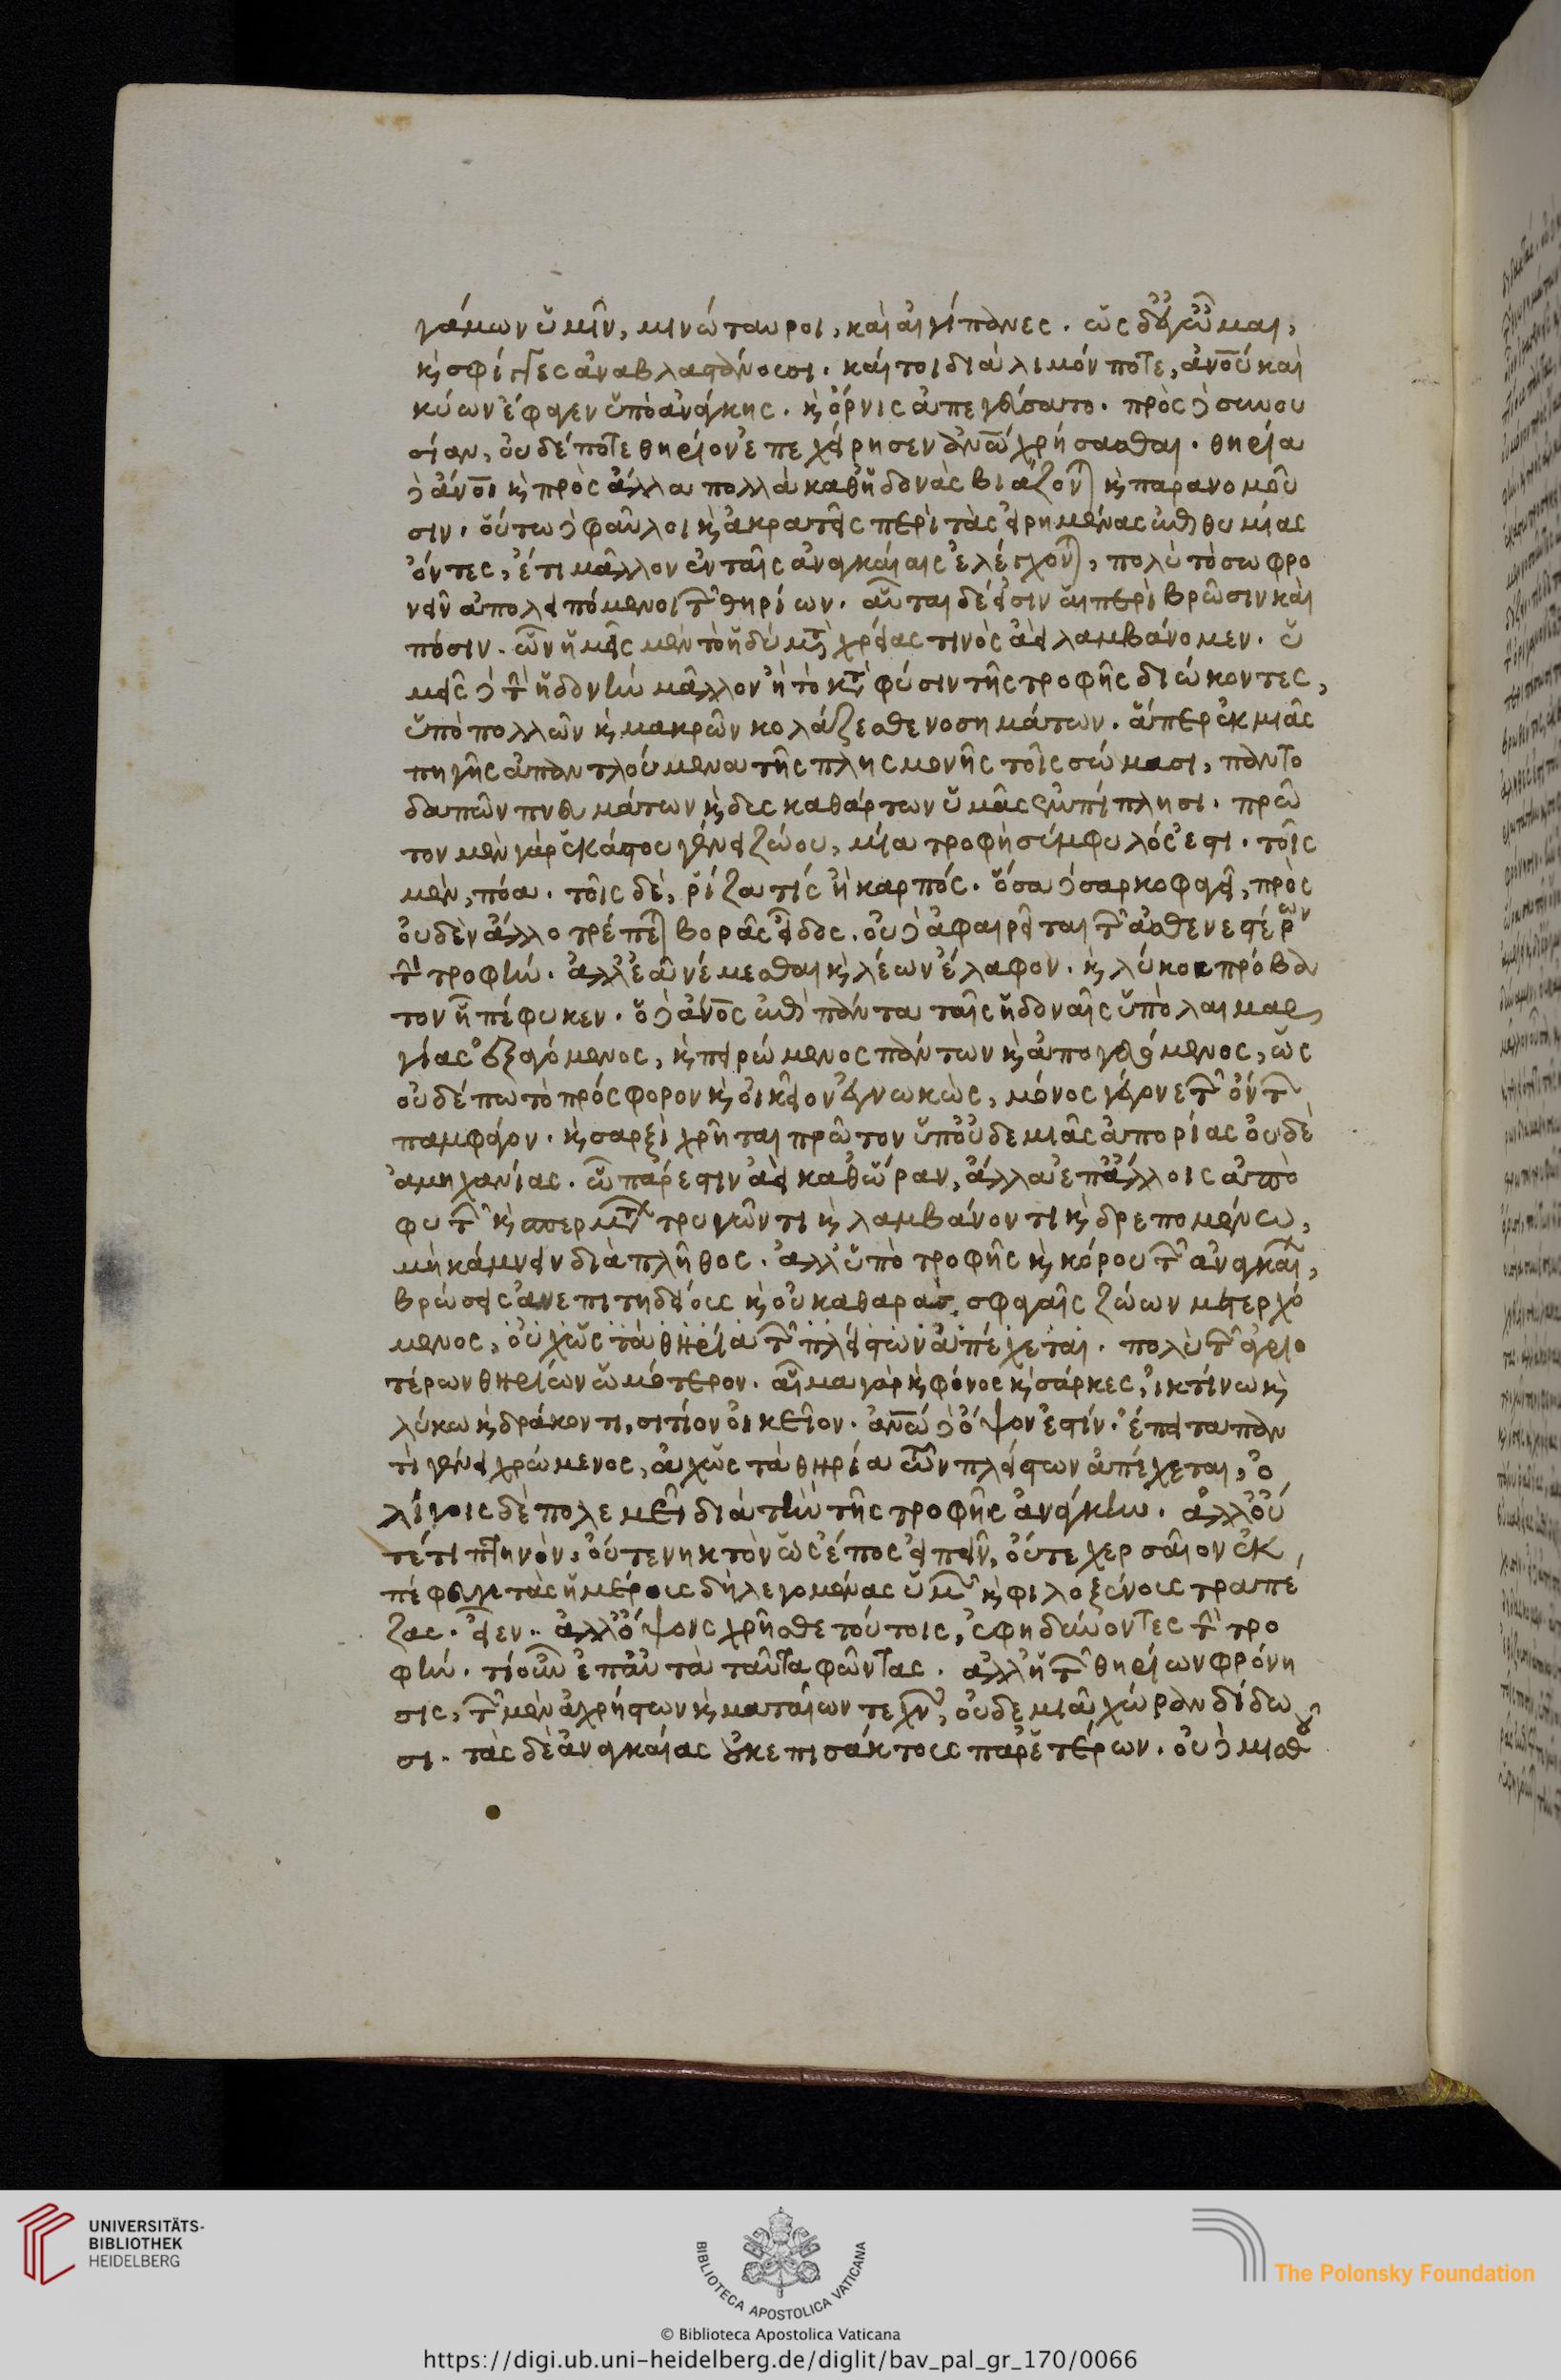 γάμων ὑμῖν, μινώταυροι, καὶ αἰγίπανες. ὡς δ' ἐγὦμαι,
ϗ σφίγγες ἀναβλαστάνουσι. καίτοι διὰ λιμόν ποτε, ἀνου καὶ
κύων ἔφαγεν ὑπὸ ἀνάγκης. ϗ ὄρνις ἀπεγεύσατο. πρὸς δὲ συνου
σίαν, οὐδέποτε θηρίον ἐπεχείρησεν ἀνω χρήσασθαι. θηρία
δὲ ἀνοι ϗ πρὸς ἄλλα πολλὰ καθ' ἡδονὰς βιάζον ϗ παρανομοῦ
σιν. οὕτω δὲ φαῦλοι ϗ ἀκρατεῖς περὶ τὰς εἰρημένας ἐπιθυμίας
ὄντες, ἔτι μᾶλλον ἐν ταῖς ἀναγκαίαις ἐλέγχον, πολὺ τὸ σωφρο
νεῖν ἀπολειπόμενοι τῶν θηρίων. αὗται δέ εἰσιν αἱ περὶ βρῶσιν καὶ
πόσιν. ὧν ἡμεῖς μὲν τὸ ἡδὺ μετὰ χρείας τινὸς ἀεὶ λαμβάνομεν. ὑ
μεῖς δὲ τὴν ἡδονὴν μᾶλλον ἢ τὸ κατὰ φύσιν τῆς τροφῆς διώκοντες,
ὑπὸ πολλῶν ϗ μακρῶν κολάζεσθε νοσημάτων. ἅπερ ἐκ μιᾶς
πηγῆς ἀπαντλούμενα τῆς πλησμονῆς τοῖς σώμασι, παντο
δαπῶν πνευμάτων ϗ δυσκαθάρτων ὑμᾶς ἐμπίπλησι. πρῶ
τον μὲν γὰρ ἑκάστου γένει ζώου, μία τροφὴ σύμφυλός ἐστι. τοῖς
μὲν, πόα. τοῖς δέ, ῥίζα τίς ἢ καρπός. ὅσα δὲ σαρκοφαγεῖ, πρὸς
οὐδὲν ἄλλο τρέπε βορᾶς εἶδος. οὐδὲ ἀφαιρεῖται τῶν ἀσθενεστέρων
τὴν τροφήν. ἀλλ' ἐᾶ νέμεσθαι ϗ λέων ἔλαφον. ϗ λύκος πρόβα
τον ᾗ πέφυκεν. ὁ δὲ ἀνος ἐπὶ πάντα ταῖς ἡδοναῖς ὑπὸ λαιμαρ
γίας ἐξαγόμενος, ϗ πειρώμενος πάντων ϗ ἀπογευόμενος, ὡς
οὐδέπω τὸ πρόσφορον ϗ οἰκεῖον ἐγνωκὼς, μόνος γέγονε τῶν ὄντων
παμφάγον. ϗ σαρξὶ χρῆται πρῶτον ὑπ' οὐδεμιᾶς ἀπορίας οὐδὲ
ἀμηχανίας. ᾧ πάρεστιν ἀεὶ καθ' ὥραν, ἄλλα ἐπ' ἄλλοις ἀπὸ
φυτῶν ϗ σπερμάτων τρυγῶντι ϗ λαμβάνοντι ϗ δρεπομένῳ,
μὴ κάμνειν διὰ πλῆθος. ἀλλ' ὑπὸ τροφῆς ϗ κόρου τῶν ἀναγκαίων,
βρώσεις ἀνεπιτηδείους ϗ οὐ καθαρὰς σφαγαῖς ζώων μετερχό
μενος, οὐχ ὡς τὰ θηρία τῶν πλείστων ἀπέχεται. πολὺ τῶν ἀγριο
τέρων θηρίων ὠμότερον. αἷμα γὰρ ϗ φόνος ϗ σάρκες, ἰκτίνω ϗ
λύκω ϗ δράκοντι, σιτίον οἰκεῖον. ἀνω δὲ ὄψον ἐστίν. ἔπειτα παν
τὶ γένει χρώμενος, οὐχ ὡς τὰ θηρία τῶν πλείστων ἀπέχεται, ὀ
λίγοις δὲ πολεμεῖ διὰ τὴν τῆς τροφῆς ἀνάγκην. ἀλλ' οὔ
τέ τι πτηνὸν, οὔτε νηκτὸν ὡς ἔπος εἰπεῖν, οὔτε χερσαῖον ἐκ
πέφευγε τὰς ἡμέρους δὴ λεγομένας ὑμῶν ϗ φιλοξένους τραπέ
ζας. εἶεν. ἀλλ' ὄψοις χρῆσθε τούτοις, ἐφηδύνοντες τὴν τρο
φήν. τί οὖν ἐπ' αὐτὰ ταῦτα φῶντας. ἀλλ' ἡ τῶν θηρίων φρόνη
σις, τῶν μὲν ἀχρήστων ϗ ματαίων τεχνῶν, οὐδεμιᾶ χώραν δίδω
σι. τὰς δὲ ἀναγκαίας οὐκ ἐπισάκτους παρ' ἑτέρων. οὐδὲ μισθοῦ
UNIVERSITÄTS-
BIBLIOTHEK
HEIDELBERG
BIBLIOTECA APOSTOLICA VATICANA
The Polonsky Foundation
© Biblioteca Apostolica Vaticana
https://digi.ub.uni-heidelberg.de/diglit/bav_pal_gr_170/0066